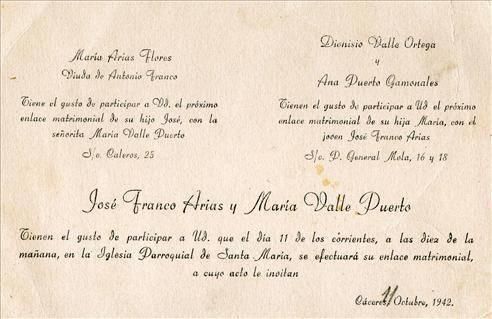 María Arias Flores
Viuda de Antonio Franco
Tiene el gusto de participar a Vd. el próximo
enlace matrimonial de su hijo José, con la
señorita María Valle Puerto
S/c. Caleros, 25
Dionisio Valle Ortega
y
Ana Puerto Gamonales
Tienen el gusto de participar a Ud el próximo
enlace matrimonial de su hija María, con el
joven José Franco Arias
S/c. P. General Mola, 16 y 18
José Franco Arias y María Valle Puerto
Tienen el gusto de participar a Ud. que el día 11 de los corrientes, a las diez de la
mañana, en la Iglesia Parroquial de Santa María, se efectuará su enlace matrimonial,
a cuyo acto le invitan
Cáceres, Octubre, 1942.